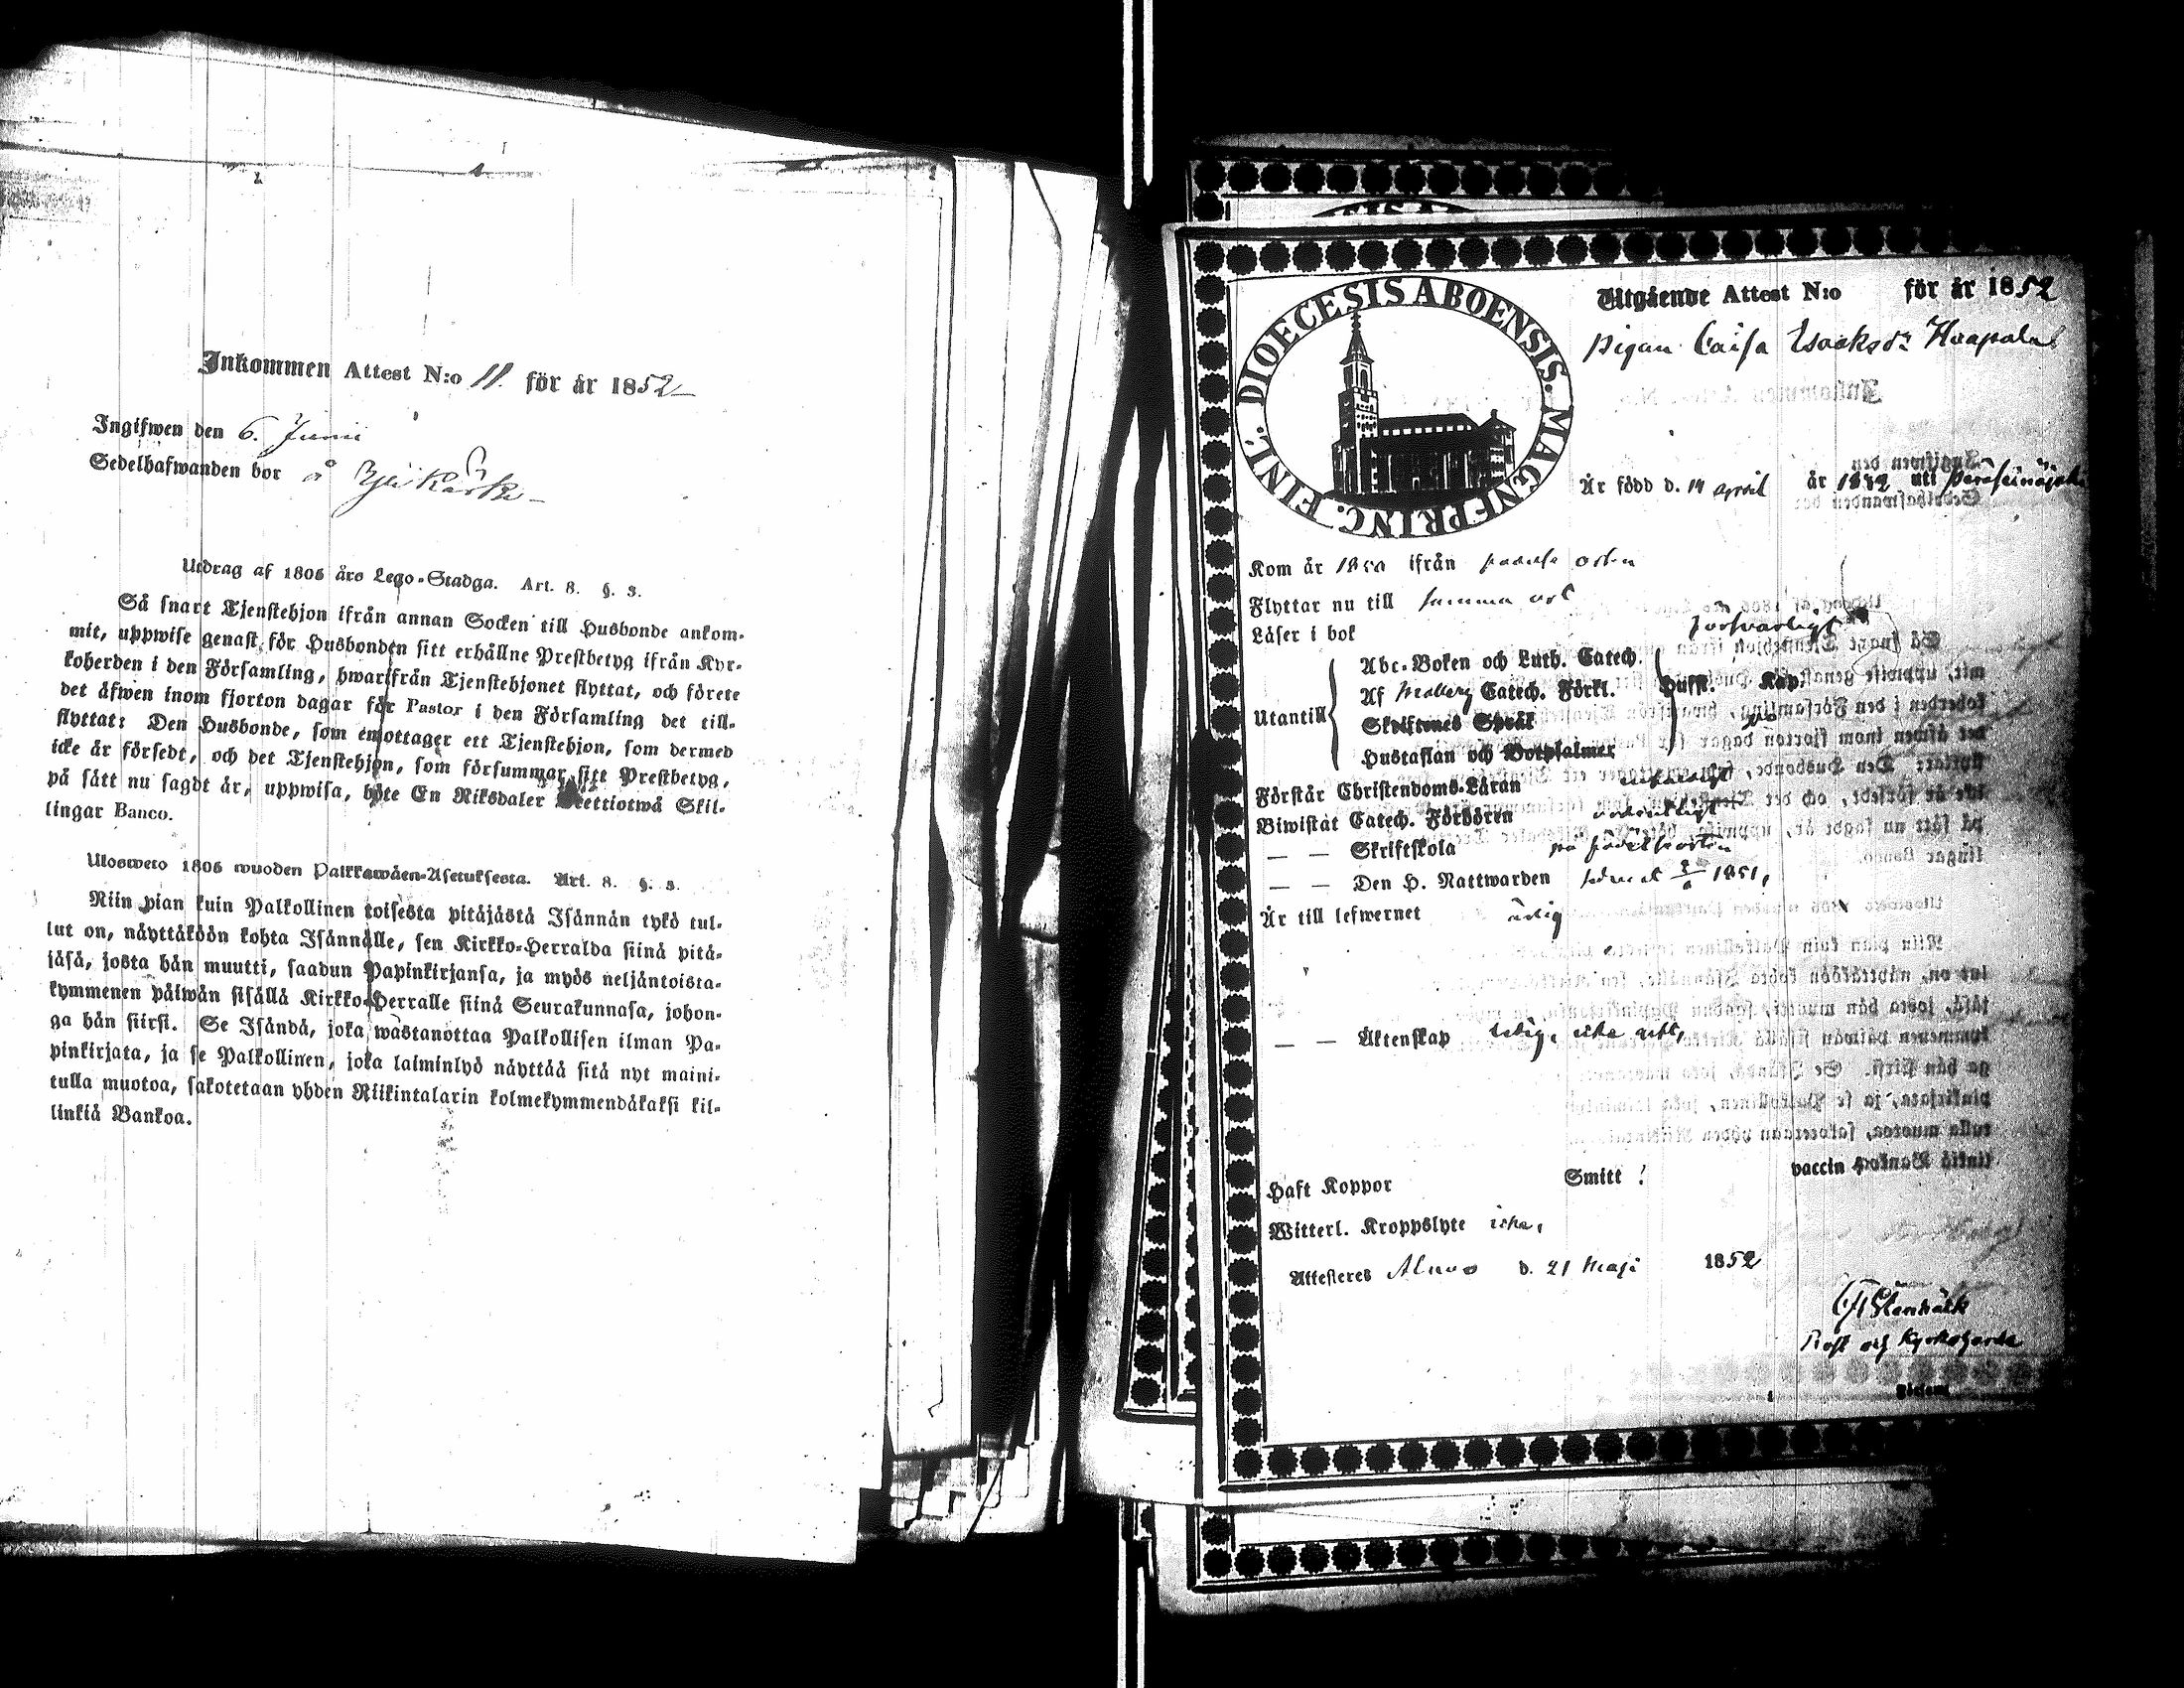 Inkommen Attest N:o 11. för år 1852
Ingifwen den 6. Junii
Sedelhafwanden bor å
Utdrag af 1806 års Lego-Stadga. Art. 8. §. 3.
Så snart Tjenstehjon ifrån annan Socken till Husbonde ankom-
mit, uppwise genast för Husbonden sitt erhållne Prestbetyg ifrån Kyr-
koherden i den Församling, hwarifrån Tjenstehjonet flyttat, och förete
det äfwen inom fjorton dagar för Pastor i den Församling det till-
flyttat: Den Husbonde, som emottager ett Tjenstehjon, som dermed
icke är försedt, och det Tjenstehjon, som försummar sitt Prestbetyg,
på sätt nu sagdt är, uppwisa, böte En Riksdaler Trettiotwå Skil-
lingar Banco.
Ulosweto 1806 wuoden Palkkawäen-Asetuksesta. Art. 8. §. 3.
Niin pian kuin Palkollinen toisesta pitäjästä Isännän tykö tul-
lut on, näyttäköön kohta Isännälle, sen Kirkko-Herralda siinä pitä-
jäsä, josta hän muutti, saadun Papinkirjansa, ja myös neljäntoista-
kymmenen päiwän sisällä Kirkko-Herralle siinä Seurakunnasa, johon-
ga hän siirsi. Se Isändä, joka wastanottaa Palkollisen ilman Pa-
pinkirjata, ja se Palkollinen, joka laiminlyö näyttää sitä nyt maini-
tulla muotoa, sakotetaan yhden Riikintalarin kolmekymmendäkaksi kil-
linkiä Bankoa.
DIOECESIS ABOENSIS. MAGNI PRINC. FINL.
Utgående Attest N:o för år 1852
Pigan Caisa Isaksdr Haapala
Är född d. 14 april år uti
Kom år 1850 ifrån orten
Flyttar nu till samma ort
Läser i bok försvarligt
Utantill
Abc-Boken och Luth. Catech.
Af Möllers Catech. Förkl. Hufst. Kap.
Skriftenes Språk
Hustaflan och Botpsalmer
Förstår Christendoms-Läran
Biwistat Catech. Förhören ordentligt
— — Skriftskola på födelseorten
— — Den H. Nattwarden 1851,
Är till lefwernet ärlig
— — Äktenskap ledig, icke gift,
Haft Koppor Smitt vaccin
Witterl. Kroppslyte icke,
Attesteres Alavo d. 21 Maji 1852
Stenbäck
Prost och Kyrkoherde